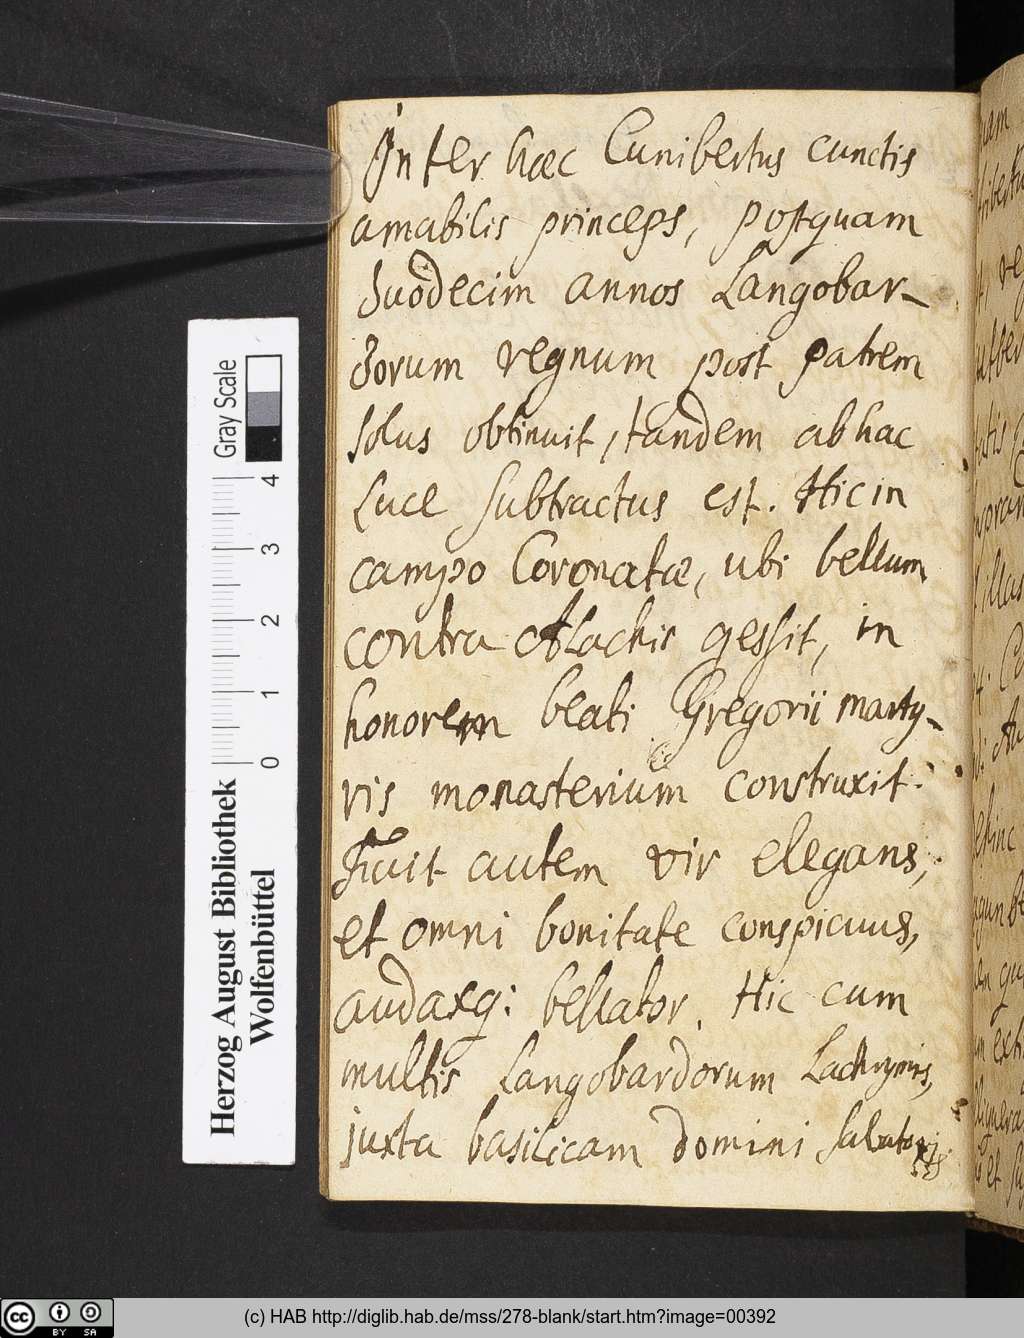 Inter hæc Cunibertus cunctis
amabilis princeps, postquam
duodecim annos Langobar-
dorum regnum post patrem
solus obtinuit, tandem ab hac
Luce subtractus est. Hic in
campo Coronatæ, ubi bellum
contra Alachis gessit, in
honorem beati Gregorii marty-
ris monasterium construxit.
Fuit autem vir elegans,
et omni bonitate conspicuus,
audaxq; bellator. Hic cum
multis Langobardorum Lachrymis,
juxta basilicam domini salvatoris
Gray Scale
4
3
2
1
0
Herzog August Bibliothek
Wolfenbüttel
cc BY SA
(c) HAB http://diglib.hab.de/mss/278-blank/start.htm?image=00392